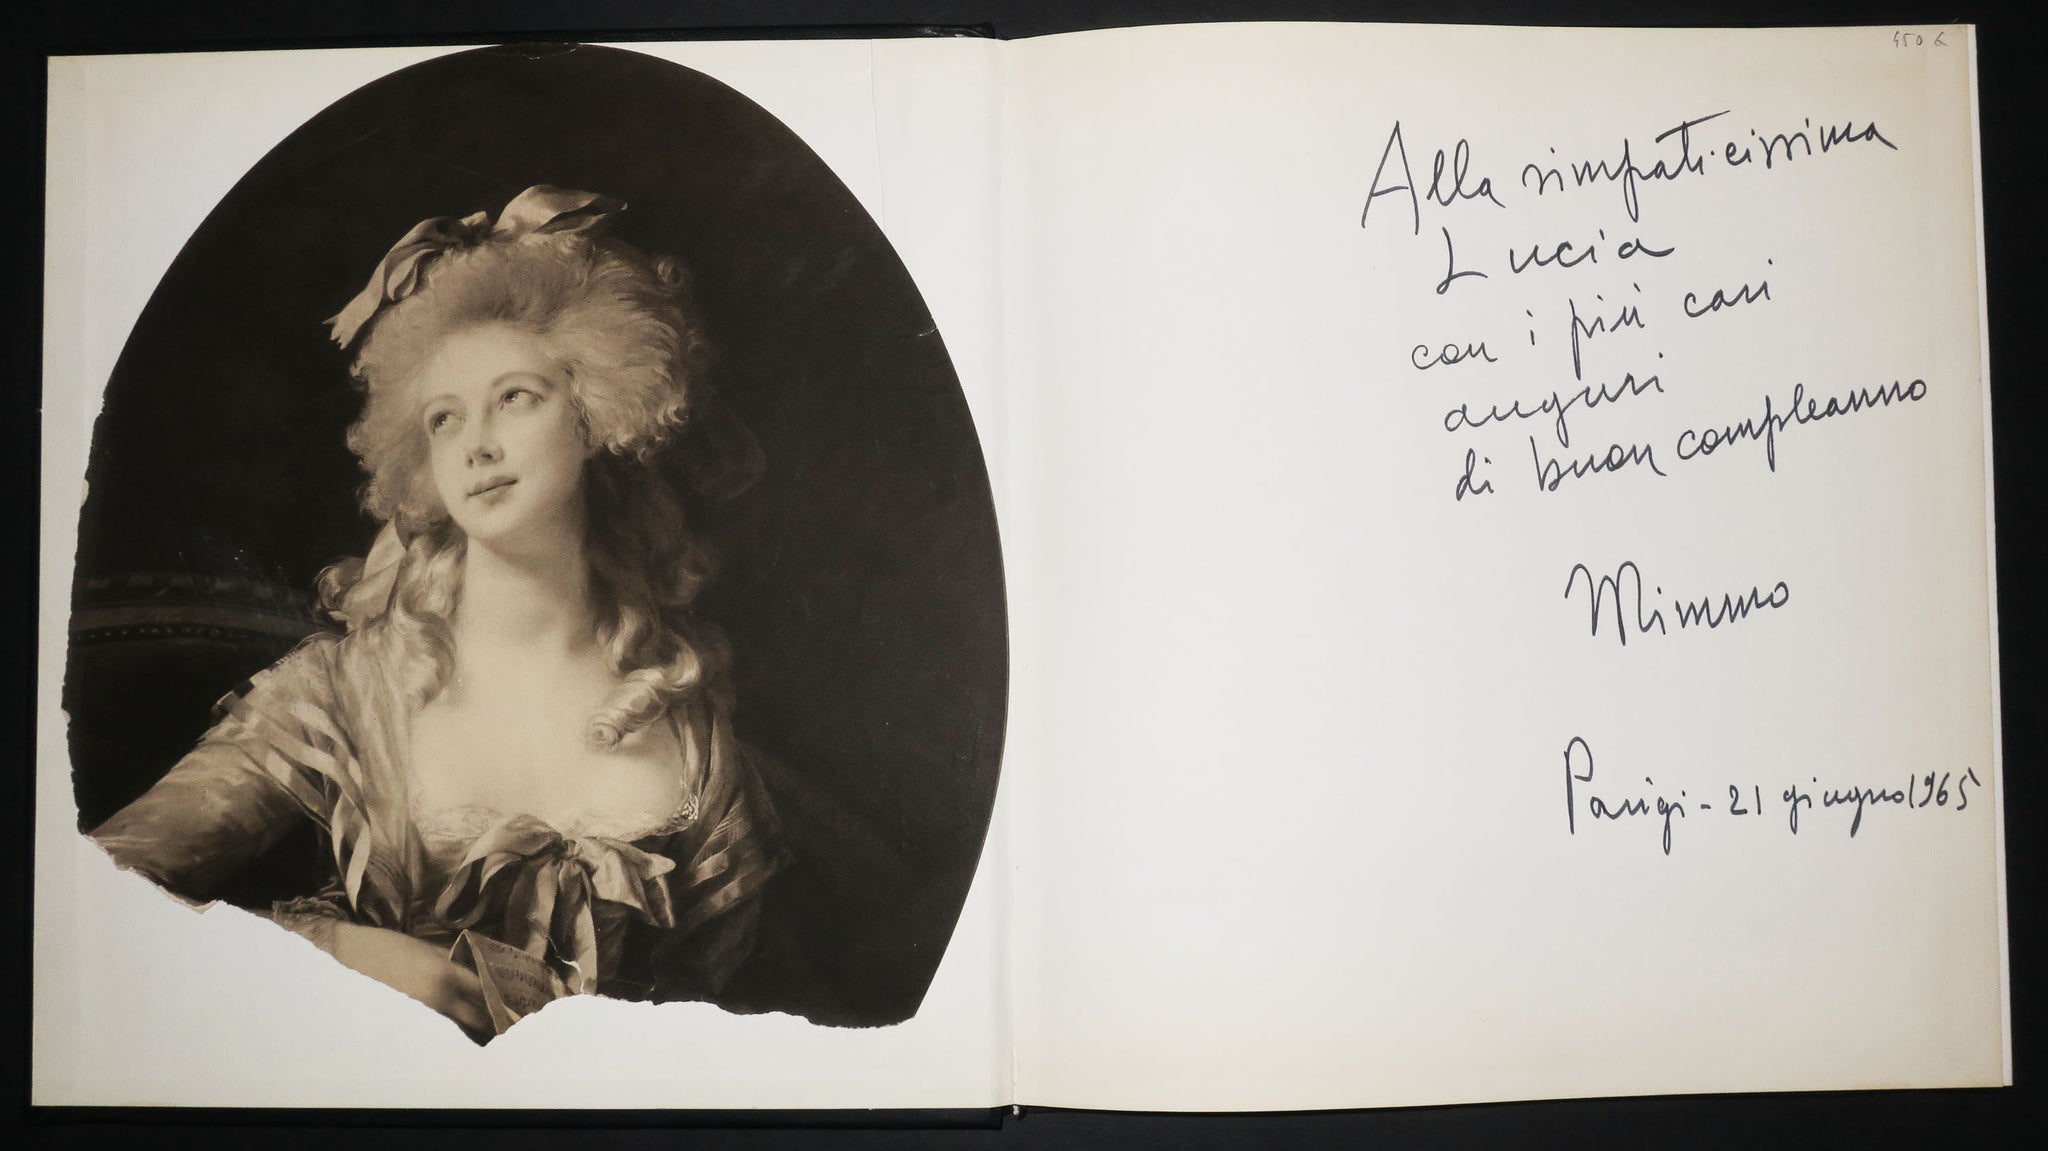 450 €
Alla simpaticissima
Lucia
con i più cari
auguri
di buon compleanno
Mimmo
Parigi - 21 giugno 1965